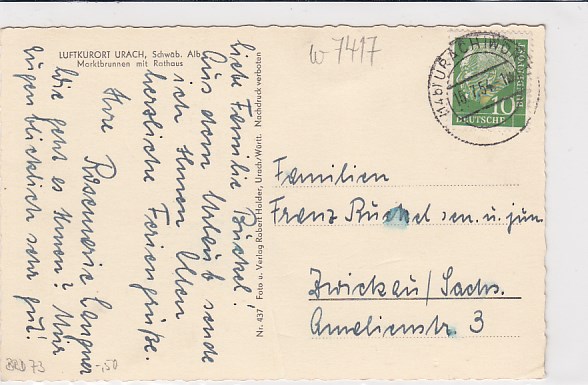 LUFTKURORT URACH, Schwäb. Alb
Marktbrunnen mit Rathaus
w 7417
(14b) URACH (WÜ
.7.54
DEUTSCHE
10
Liebe Familie Rückel!
Aus dem Urlaub sende
ich Ihnen allen
herzliche Feriengrüße.
Ihre
Rosemarie Langner
Wie geht es Ihnen? Mir
augenblicklich sehr gut!
Nr. 437 Foto u. Verlag Robert Holder, Urach/Württ. Nachdruck verboten
Familien
Franz Rückel sen. u. jun
Zwickau/Sachs.
Amelienstr. 3
BRD 73
-,50